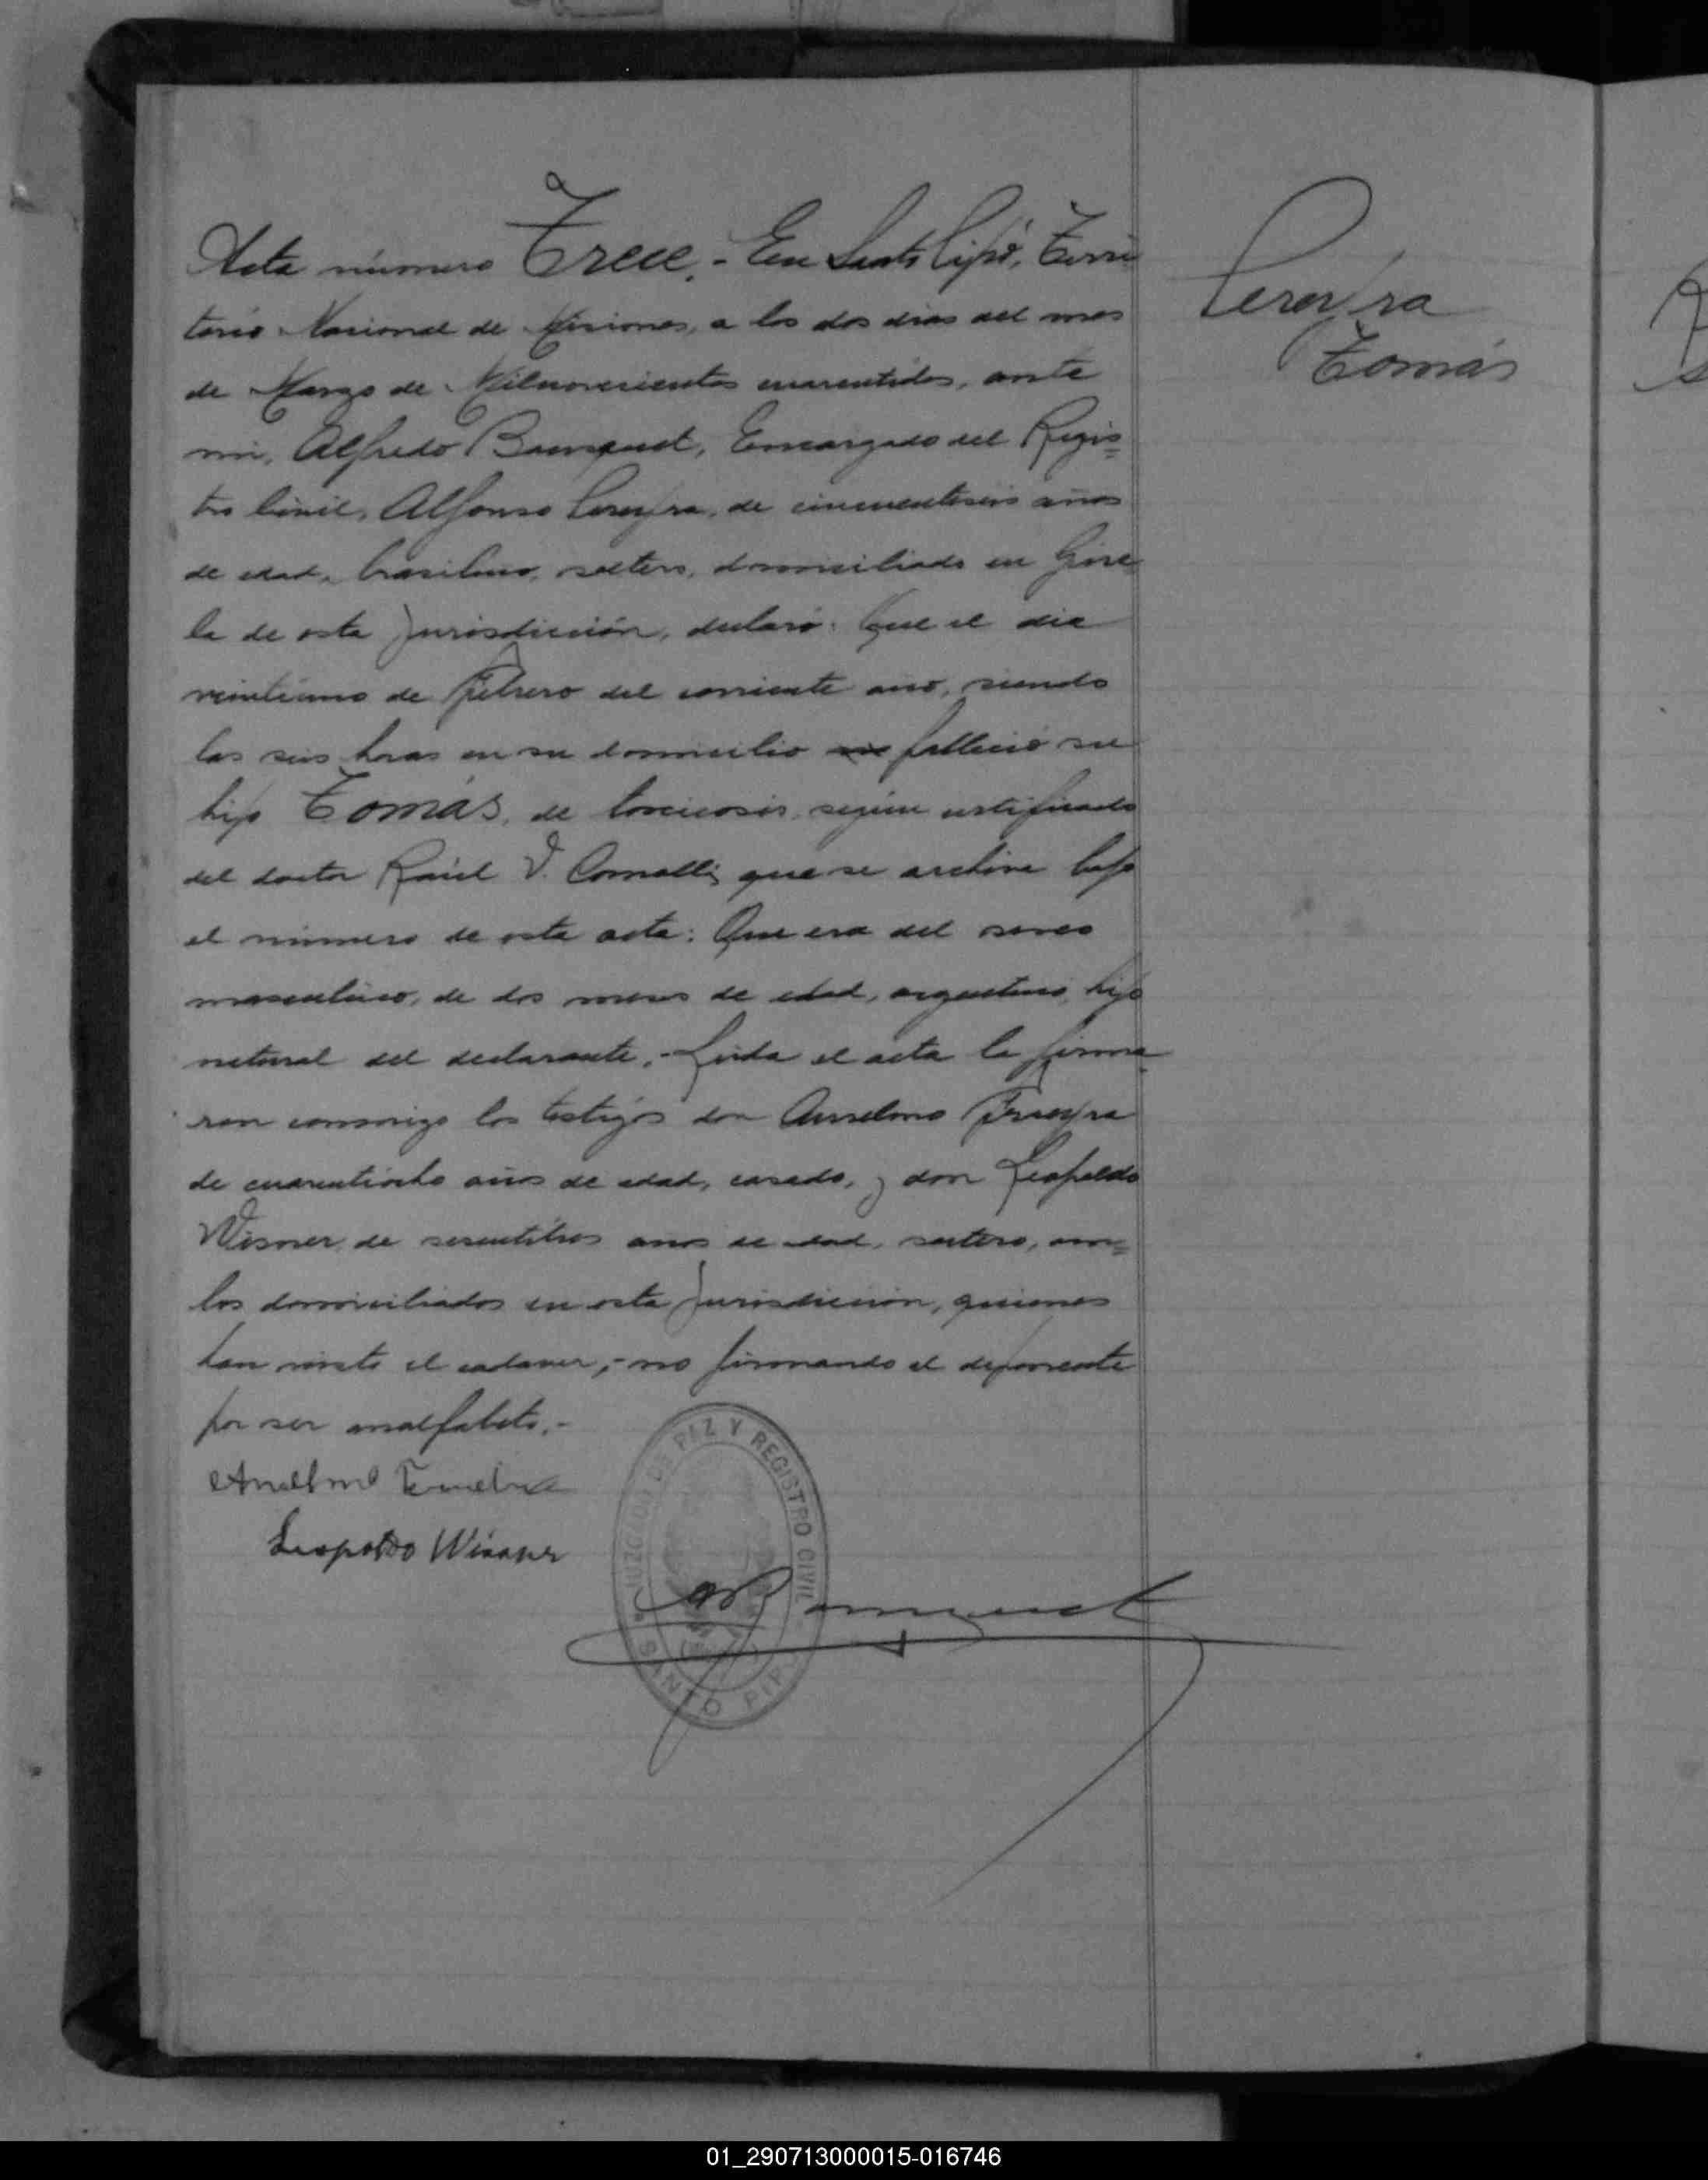 Acta número Trece.- En Santo Pipó, Terri
torio Nacional de Misiones, a los dos dias del mes
de Marzo de Milnovecientos cuarentidos, ante
mi, Alfredo Banquet, Encargado del Regis=
tro Civil, Alfonso Pereyra, de cincuentiseis años
de edad, brasilero, soltero, domiciliado en
la de esta Jurisdicción, declaró: Que el dia
veintiuno de Febrero del corriente año, siendo
las seis horas en su domicilio falleció su
hijo Tomás, de toxicosis, según certificado
del doctor Raúl V. Comolli, que se archiva bajo
el número de esta acta: Que era del sexo
masculino, de dos meses de edad, argentino, hijo
natural del declarante.- Leida el acta la firma
ron conmigo los testigos don Anselmo
de cuarentiocho años de edad, casado, y don Leopoldo
Wisner, de sesentitres años de edad, soltero, am=
bos domiciliados en esta Jurisdicción, quienes
han visto el cadaver,- no firmando el deponente
por ser analfabeto.-
Anselmo
Leopoldo Wisner
Pereyra
Tomás
JUZGADO DE PAZ Y REGISTRO CIVIL
SANTO PIPO
01_290713000015-016746